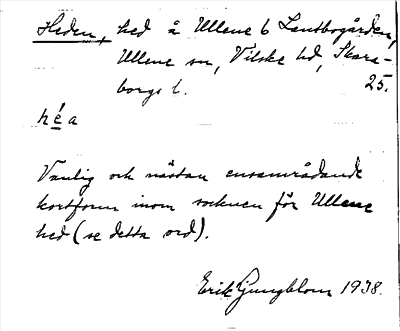 Heden, hed å Ullene 6 Lantbogården,
Ullene sn, Vilske hd, Skara-
borgs l. 25.
hé a
Vanlig och nästan ensamrådande
kortform inom socknen för Ullene
hed (se detta ord).
Erik Ljungblom 1938.